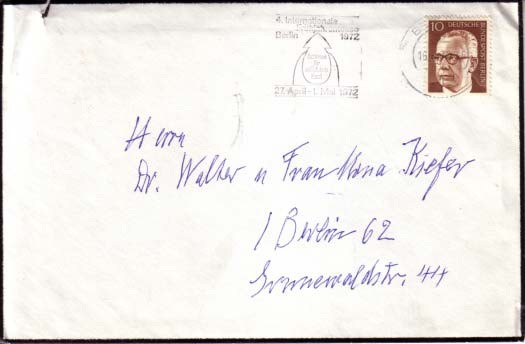 4. Internationale
Berlin 1972
27. April - 1. Mai 1972
10 DEUTSCHE BUNDESPOST BERLIN
Herrn
Dr. Walter u Frau Mona Kiefer
1 Berlin 62
44